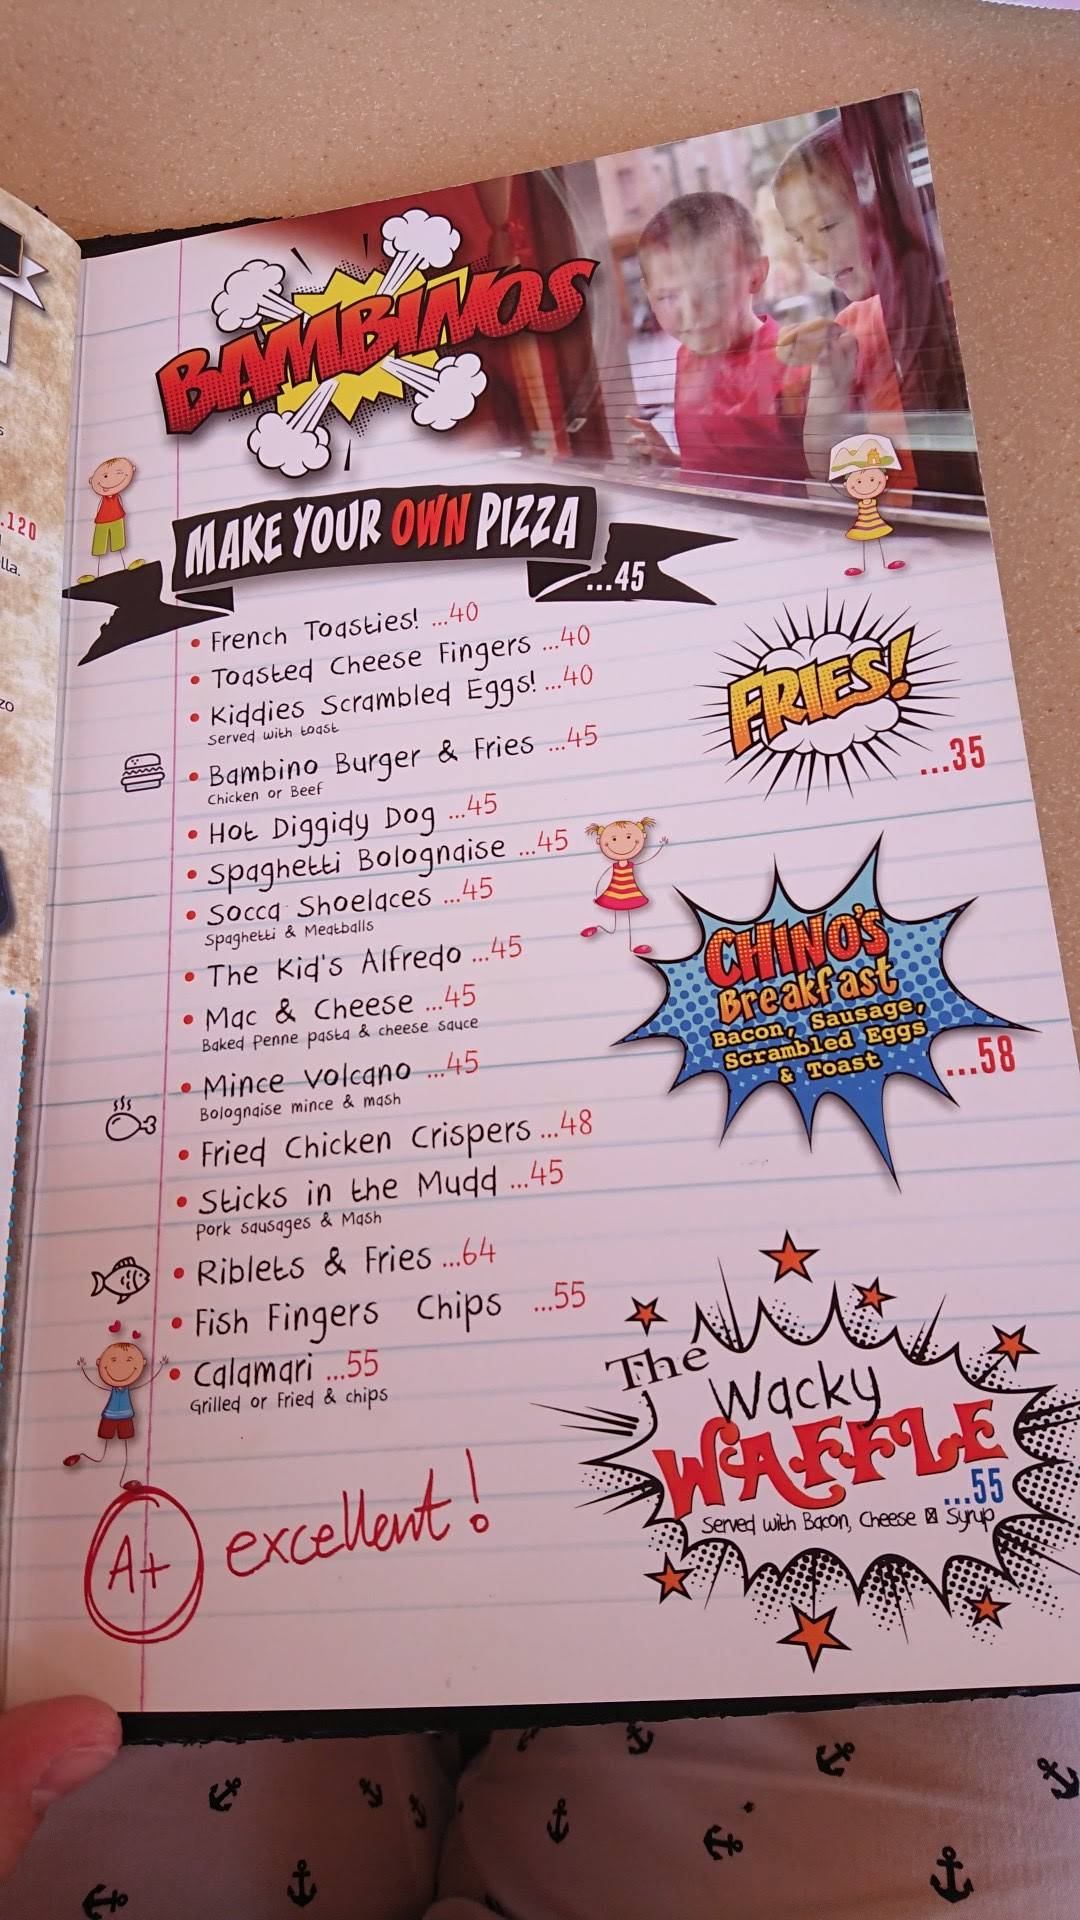 BAMBINOS
MAKE YOUR OWN PIZZA
...45
• French Toasties! ...40
• Toasted Cheese Fingers ...40
• Kiddies Scrambled Eggs! ...40
Served with toast
• Bambino Burger & Fries ...45
Chicken or Beef
• Hot Diggidy Dog ...45
• Spaghetti Bolognaise ...45
• Socca Shoelaces ...45
Spaghetti & Meatballs
• The Kid's Alfredo ...45
• Mac & Cheese ...45
Baked Penne pasta & cheese sauce
• Mince Volcano ...45
Bolognaise mince & mash
• Fried Chicken Crispers ...48
• Sticks in the Mudd ...45
Pork sausages & Mash
• Riblets & Fries ...64
• Fish Fingers Chips ...55
• Calamari ...55
Grilled or Fried & chips
A+ excellent!
FRIES!
...35
CHINO'S
Breakfast
Bacon, Sausage,
Scrambled Eggs
& Toast
...58
The
Wacky
WAFFLE
...55
Served with Bacon, Cheese ☒ Syrup
.120
lla.
zo